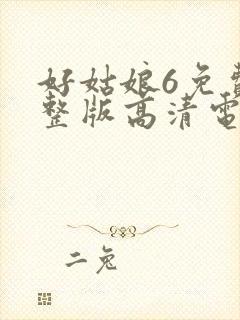 好姑娘6免費
整版高清電
二兔